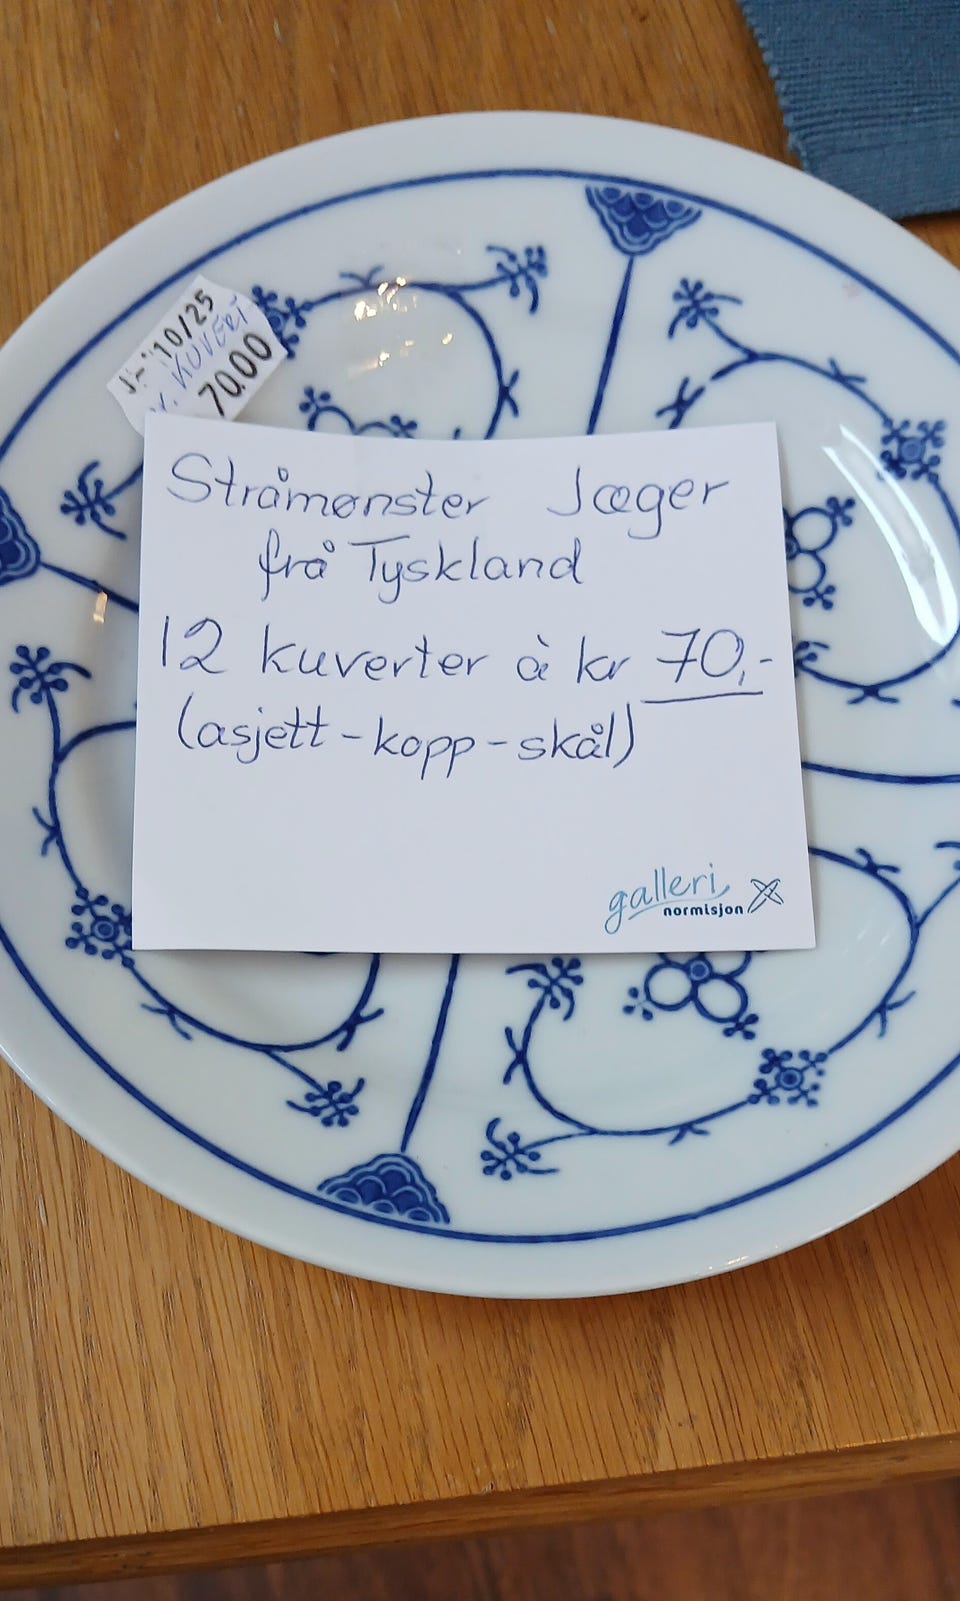 10/25
KUVERT
70.00
Stråmønster Jæger
frå Tyskland
12 kuverter à kr 70,-
(asjett-kopp-skål)
galleri
normisjon